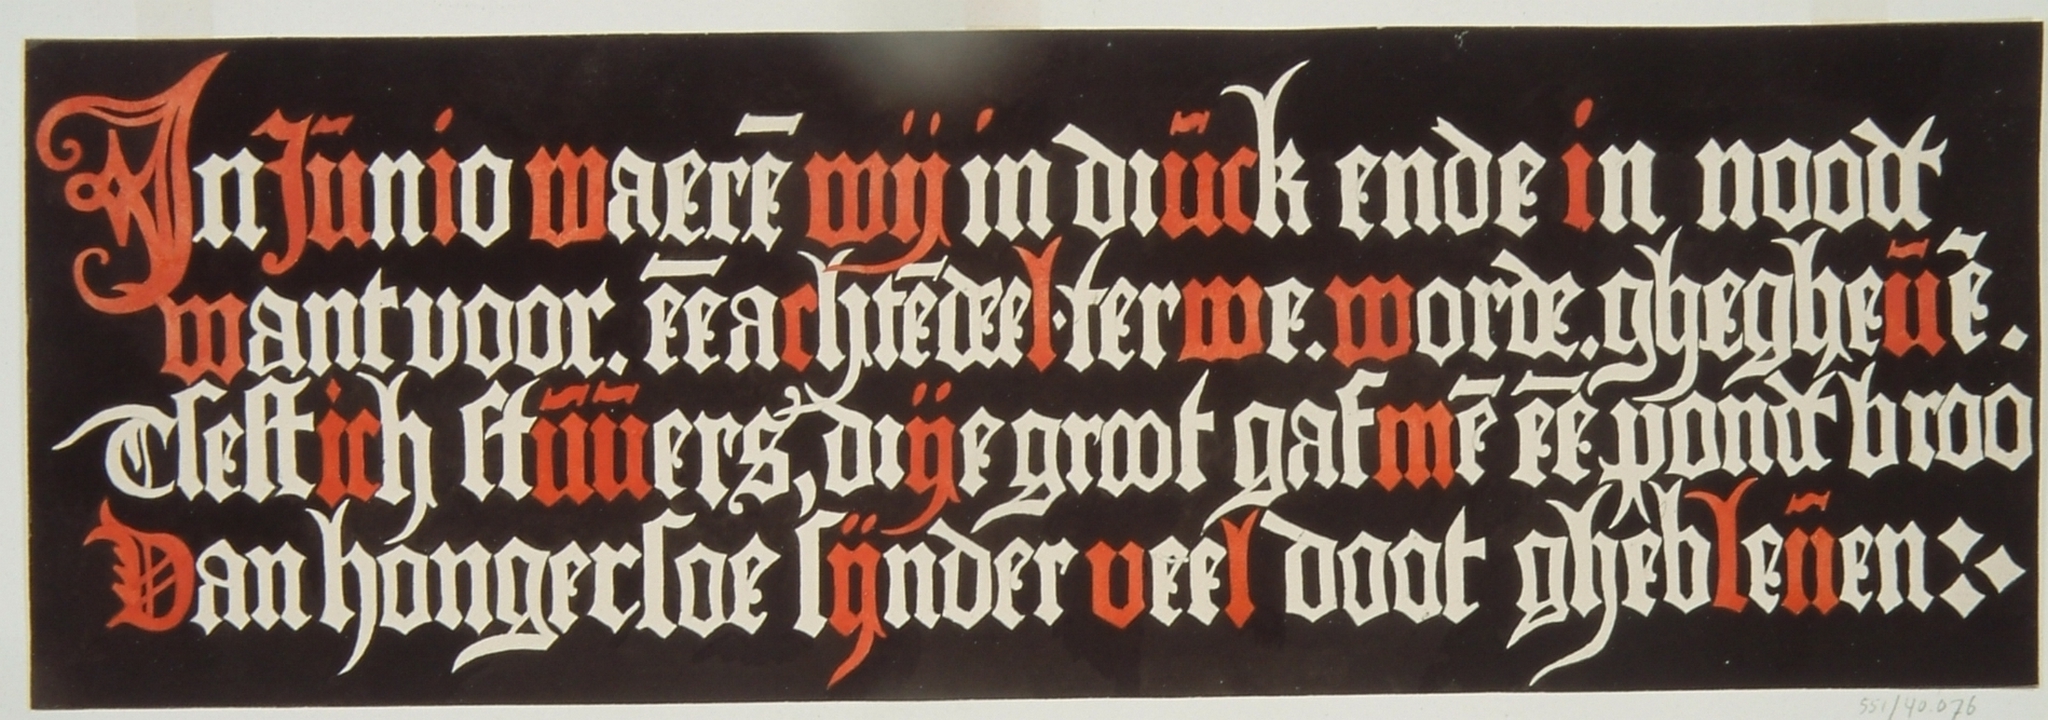 In Jūnio waerē wij in diūck ende in noodt
want voor. ēē achtēdeel·terwe. worde. ghegheūē.
Tsestich stūūers, dijë groot gaf mē ēē pondt broo
Dan honger soe sÿnder veel doot ghebleūen
551/40.076